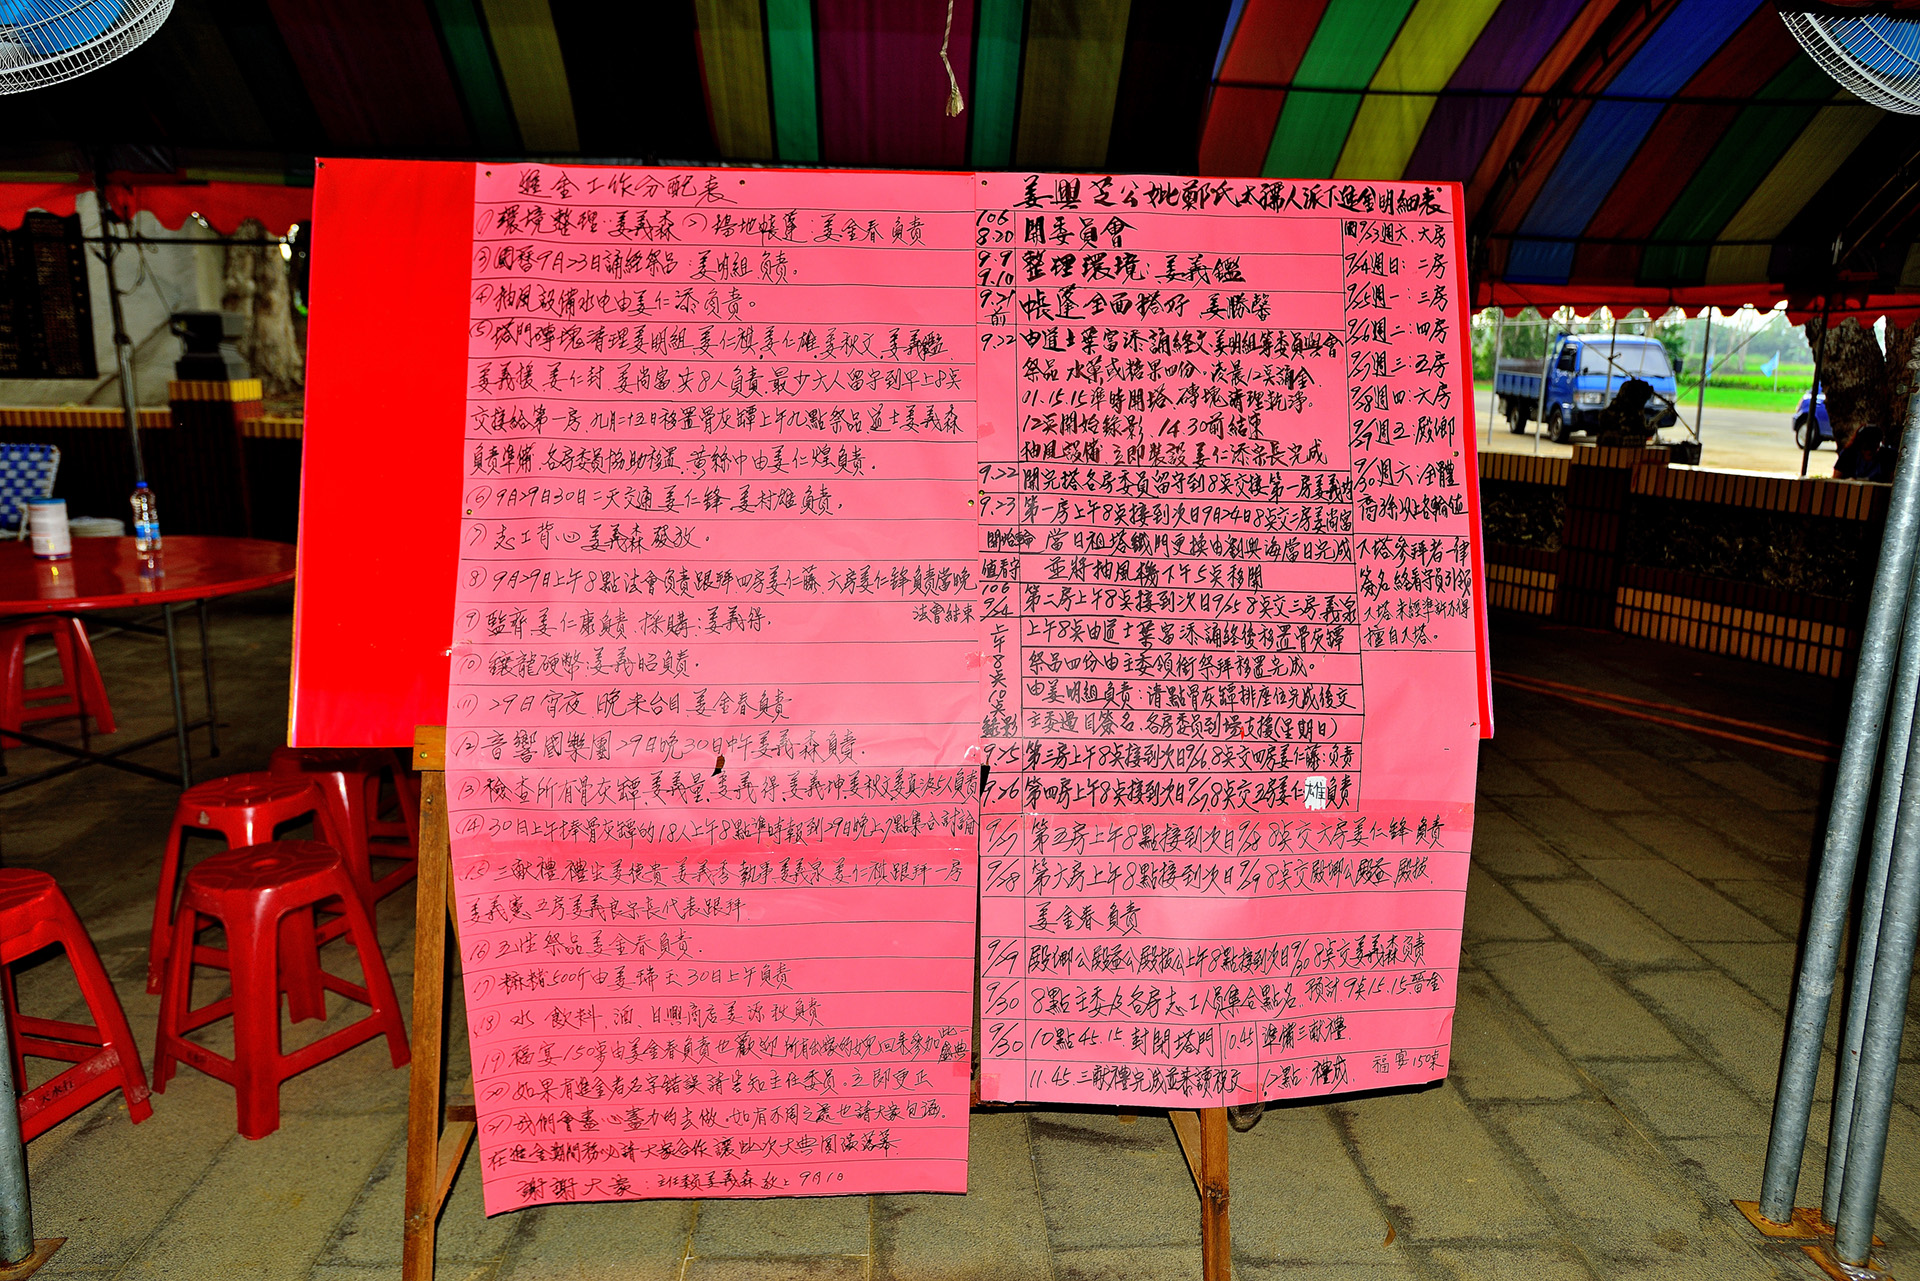 進金工作分配表
1)環境整理:姜義森 2)場地帳蓬:姜金春負責
3)國曆9月23日誦經祭品:姜明組負責。
4)抽風設備水电由姜仁添負責。
5)塔門磚塊清理姜明組.姜仁祺.姜仁雄.姜秋文.姜義鑑
姜義援.姜仁封.姜尚富.共8人負責.最少六人留守到早上8点
交接給第一房.九月二十五日移置骨灰罈上午九點祭品.道士姜義森
負責準備.各房委員協助移置.黃絲巾由姜仁煌負責。
6)9月29日30日二天交通姜仁鋒.姜村雄負責,
7)志工背心姜義森發放。
8)9月29日上午8點法會負責跟拜.四房姜仁藤.六房姜仁鋒負責當晚
法會結束
9)監齊姜仁康負責.採購:姜義得.
10)鑲龍硬幣:姜義昭負責.
11)29日宵夜.晚米台目.姜金春負責
12)音響國樂團29日晚30日中午姜義森負責.
13)檢查所有骨灰罈.姜義量.姜義得.姜義坤.姜秋文.姜真浪5人負責
14)30日上午捧骨灰罈的18人上午8點準時報到29日晚上7點集合討論
15)三獻禮禮生姜德貴.姜義秀.執事姜義泉.姜仁祺.跟拜一房
姜義憲.五房姜義良宗長代表跟拜.
16)五牲祭品姜金春負責.
17)麻糍500斤由姜瑞玉30日上午負責
18)水.飲料.酒、日興商店姜源秋負責
19)福宴150桌由姜金春負責也歡迎所有出嫁的姑婉回來參加此一盛典
20)如果有進金者名字錯誤請告知主任委員.立即更正
21)我們會盡心盡力的去做.如有不周之處也請大家包涵.
在進金期間務必請大家合作讓此次大典圓滿落幕.
謝謝大家:主任委員姜義森敬上9月10
姜興芝公妣鄭氏太孺人派下進金明細表
106 8.20 開委員會
9.9 9.10 整理環境:姜義鑑
9.21前 帳蓬全面搭好 姜勝馨
9.22 由道士葉富添誦經文姜明組等委員與會
祭品水菓或糖果四份.凌晨12点誦金.
01.15.15準時開塔.磚塊清理乾淨.
12点開始錄影.14.30前結束
抽風設備立即裝設姜仁添宗長完成
9.22 開完塔各房委員留守到8点交接第一房姜義均
9.23 第一房上午8点接到次日9月24日8点交二房姜尚富
開始輪值看守 當日祖塔鐵門更換由劉興海當日完成
並將抽風機下午5点移開
106 9/24 第二房上午8点接到次日9/25 8点交三房義泉
上午8点10点錄影 上午8点由道士葉富添誦經後移置骨灰罈
祭品四份由主委領銜祭拜移置完成。
由姜明組負責:清點骨灰罈排座位完成後交
主委過目簽名.各房委員到場支援(星期日)
9.25 第三房上午8点接到次日9/26.8点交四房姜仁藤:負責
9.26 第四房上午8点接到次日9/27.8点交五房姜仁雄負責
9/27 第五房上午8點接到次日9/28 8点交六房姜仁鋒負責
9/28 第六房上午8點接到次日9/29 8点交殿卿公殿益.殿拔.
姜金春負責
9/29 殿卿公殿益公殿拔公上午8點接到次日9/30 8点交姜義森負責
9/30 8點主委及各房志工人員集合點名.預計.9点15.15.晉金
9/30 10點45.15.封閉塔門 10.45準備三獻禮.
11.45.三獻禮完成並恭讀祝文 12點:禮成. 福宴150桌
國9/23週六.大房
9/24週日:二房
9/25週一:三房
9/26週二:四房
9/27週三:五房
9/28週四:六房
9/29週五:殿卿
9/30週六:全體
裔孫以上各輪值
入塔參拜者一律
簽名.給看守員引領
入塔.未經準許不得
擅自入塔。